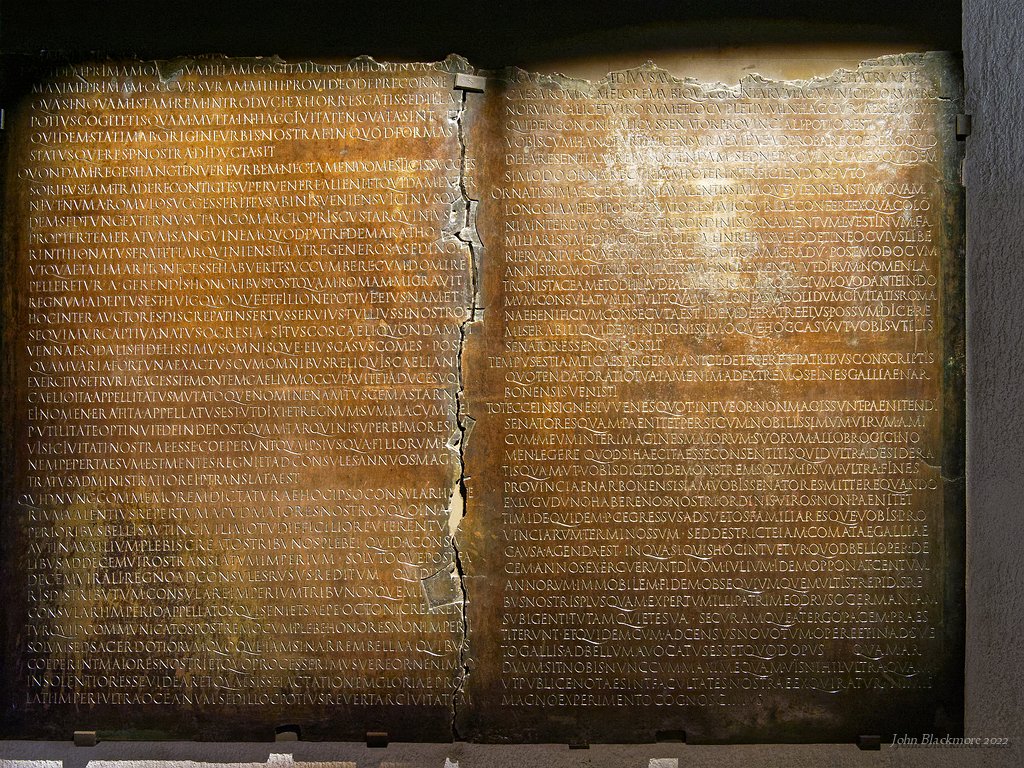 MAXIME PRIMAM OCCVRSVRAM MIHI PROVIDEO DEPRECOR NE
QVASI NOVAM ISTAM REM INTRODVCI EXHORRESCATIS SED ILLA
POTIVS COGITETIS QVAM MVLTA IN HAC CIVITATE NOVATA SINT
QVIDEM STATIM AB ORIGINE VRBIS NOSTRAE IN QVOD FORMAS
STATVSQVE RES P NOSTRA DIDVCTA SIT
QVONDAM REGES HANC TENVERE VRBEM NEC TAMEN DOMESTICIS SVCCES
SORIBVS EAM TRADERE CONTIGIT SVPERVENERE ALIENI ET QVIDAM EX
NI VT NVMA ROMVLO SVCCESSERIT EX SABINIS VENIENS VICINVS
DEM SED TVNC EXTERNVS VT ANCO MARCIO PRISCVS TARQVINIVS
PROPTER TEMERATVM SANGVINEM QVOD PATRE DEMARATHO
RINTHIO NATVS ERAT ET TARQVINIENSI MATRE GENEROSA SED
VT QVAE TALI MARITO NECESSE HABVERIT SVCCVMBERE CVM DOMI RE
PELLERETVR A GERENDIS HONORIBVS POSTQVAM ROMAM MIGRAVIT
REGNVM ADEPTVS EST HVIC QVOQVE ET FILIO NEPOTIVE EIVS NAM ET
HOC INTER AVCTORES DISCREPAT INSERTVS SERVIVS TVLLIVS SI NOSTRO
SEQVIMVR CAPTIVA NATVS OCRESIA SI TVSCOS CAELI QVONDAM
VENNAE SODALIS FIDELISSIMVS OMNISQVE EIVS CASVS COMES POS
QVAM VARIA FORTVNA EXACTVS CVM OMNIBVS RELIQVIS CAELIAN
EXERCITVS ETRVRIA EXCESSIT MONTEM CAELIVM OCCVPAVIT ET A DVCE SVO
CAELIO ITA APPELLITATVS MVTATOQVE NOMINE NAM TVSCE MASTARN
EI NOMEN ERAT ITA APPELLATVS EST VT DIXI ET REGNVM SVMMA CVM
P VTILITATE OPTINVIT DEINDE POSTQVAM TARQVINI SVPERBI MORES
VISI CIVITATI NOSTRAE ESSE COEPERVNT QVA IPSIVS QVA FILIORVM
NEMPE PERTAESVM EST MENTES REGNI ET AD CONSVLES ANNVOS MAG
TRATVS ADMINISTRATIO REI P TRANSLATA EST
QVID NVNC COMMEMOREM DICTATVRAE HOC IPSO CONSVLARI
RIVM VALENTIVS REPERTVM APVD MAIORES NOSTROS QVO IN
PERIORIBVS BELLIS AVT IN CIVILI MOTV DIFFICILIORE VTERENTVR
AVT IN AVXILIVM PLEBIS CREATOS TRIBVNOS PLEBEI QVID A CONSV
LIBVS AD DECEMVIROS TRANSLATVM IMPERIVM SOLVTOQVE POS
DECEMVIRALI REGNO AD CONSVLES RVSVS REDITVM QVID
RIS DISTRIBVTVM CONSVLARE IMPERIVM TRIBVNOSQVE
CONSVLARI IMPERIO APPELLATOS QVI SENI ET SAEPE OCTONI CREAREN
TVR QVID COMMVNICATOS POSTREMO CVM PLEBE HONORES NON IMPERI
SOLVM SED SACERDOTIORVM QVOQVE IAM SI NARREM BELLA A QVIBVS
COEPERINT MAIORES NOSTRI ET QVO PROCESSERIMVS VEREOR NE NIMIO
INSOLENTIOR ESSE VIDEAR ET QVAESISSE IACTATIONEM GLORIAE PRO
LATI IMPERI VLTRA OCEANVM SED ILLOC POTIVS REVERTAR CIVITATEM
SI MODO ORNARE CVRIAM POTERINT REICIENDOS PVTO
ORNATISSIMA ECCE COLONIA VALENTISSIMAQVE VIENNENSIVM QVAM
LONGO IAM TEMPORE SENATORES HVIC CVRIAE CONFERT EX QVA COLO
NIA INTER PAVCOS EQVESTRIS ORDINIS ORNAMENTVM L VESTINVM FA
MILIARISSIME DILIGO ET HODIEQVE IN REBVS MEIS DETINEO CVIVS LIBE
RI FRVANTVR QVAESO PRIMO SACERDOTIORVM GRADV POST MODO CVM
ANNIS PROMOTVRI DIGNITATIS SVAE INCREMENTA VT DIRVM NOMEN LA
TRONIS TACEAM ET ODI ILLVD PALAESTRICVM PRODIGIVM QVOD ANTE IN DO
MVM CONSVLATVM INTVLIT QVAM COLONIA SVA SOLIDVM CIVITATIS ROMA
NAE BENEFICIVM CONSECVTA EST IDEM DE FRATRE EIVS POSSVM DICERE
MISERABILI QVIDEM INDIGNISSIMOQVE HOC CASV VT VOBIS VTILIS
SENATOR ESSE NON POSSIT
TEMPVS EST IAM TI CAESAR GERMANICE DETEGERE TE PATRIBVS CONSCRIPTIS
QVO TENDAT ORATIO TVA IAM ENIM AD EXTREMOS FINES GALLIAE NAR
BONENSIS VENISTI
TOT ECCE INSIGNES IVVENES QVOT INTVEOR NON MAGIS SVNT PAENITENDI
SENATORES QVAM PAENITET PERSICVM NOBILISSIMVM VIRVM AMI
CVM MEVM INTER IMAGINES MAIORVM SVORVM ALLOBROGICI NO
MEN LEGERE QVOD SI HAEC ITA ESSE CONSENTITIS QVID VLTRA DESIDERA
TIS QVAM VT VOBIS DIGITO DEMONSTREM SOLVM IPSVM VLTRA FINES
PROVINCIAE NARBONENSIS IAM VOBIS SENATORES MITTERE QVANDO
EX LVGVDVNO HABERE NOS NOSTRI ORDINIS VIROS NON PAENITET
TIMIDE QVIDEM P C EGRESSVS ADSVETOS FAMILIARESQVE VOBIS PRO
VINCIARVM TERMINOS SVM SED DESTRICTE IAM COMATAE GALLIAE
CAVSA AGENDA EST IN QVA SI QVIS HOC INTVETVR QVOD BELLO PER DE
CEM ANNOS EXERCVERVNT DIVOM IVLIVM IDEM OPPONAT CENTVM
ANNORVM IMMOBILEM FIDEM OBSEQVIVMQVE MVLTIS TREPIDIS RE
BVS NOSTRIS PLVS QVAM EXPERTVM ILLI PATRI MEO DRVSO GERMANIAM
SVBIGENTI TVTAM QVIETE SVA SECVRAMQVE A TERGO PACEM PRAES
TITERVNT ET QVIDEM CVM AD CENSVS NOVO TVM OPERE ET INADSVE
TO GALLIS AD BELLVM AVOCATVS ESSET QVOD OPVS QVAM AR
DVVM SIT NOBIS NVNC CVM MAXIME QVAMVIS NIHIL VLTRA QVAM
VT PVBLICE NOTAE SINT FACVLTATES NOSTRAE EXQVIRATVR NIMIS
MAGNO EXPERIMENTO COGNOSCIMVS
John Blackmore 2022